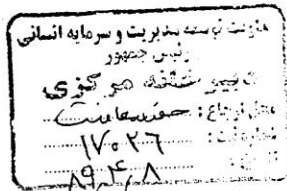 معاونت توسعه مدیریت و سرمایه انسانی
رئیس جمهور
دبیرخانه مرکزی
محل ارجاع :
شماره ثبت : ۱۷۰۲۶
تاریخ : ۸۹،۴،۸